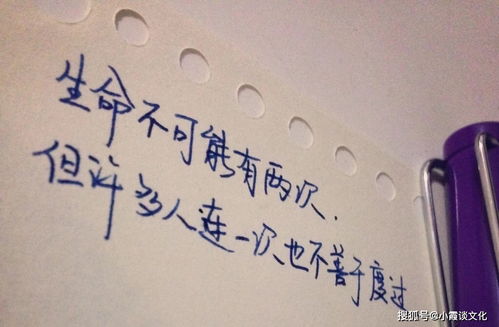 生命不可能有两次.
但许多人连一次也不善于度过
搜狐号@小霞谈文化